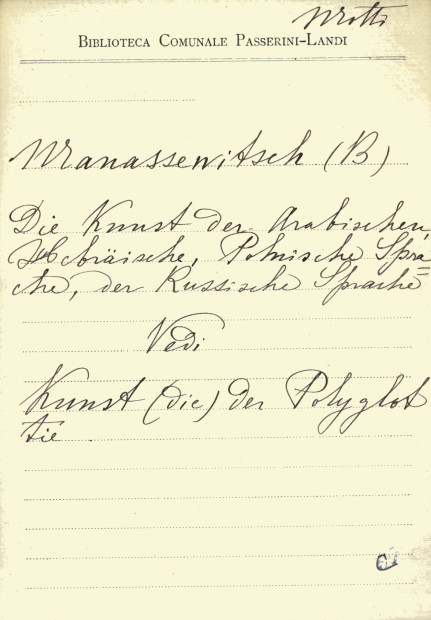 Motti
BIBLIOTECA COMUNALE PASSERINI-LANDI
Manassewitsch (B)
Die Kunst der Arabischen,
Hebräische, Polnische Spra=
che, der Russische Sprache
Vedi
Kunst (die) der Polyglot
tie.